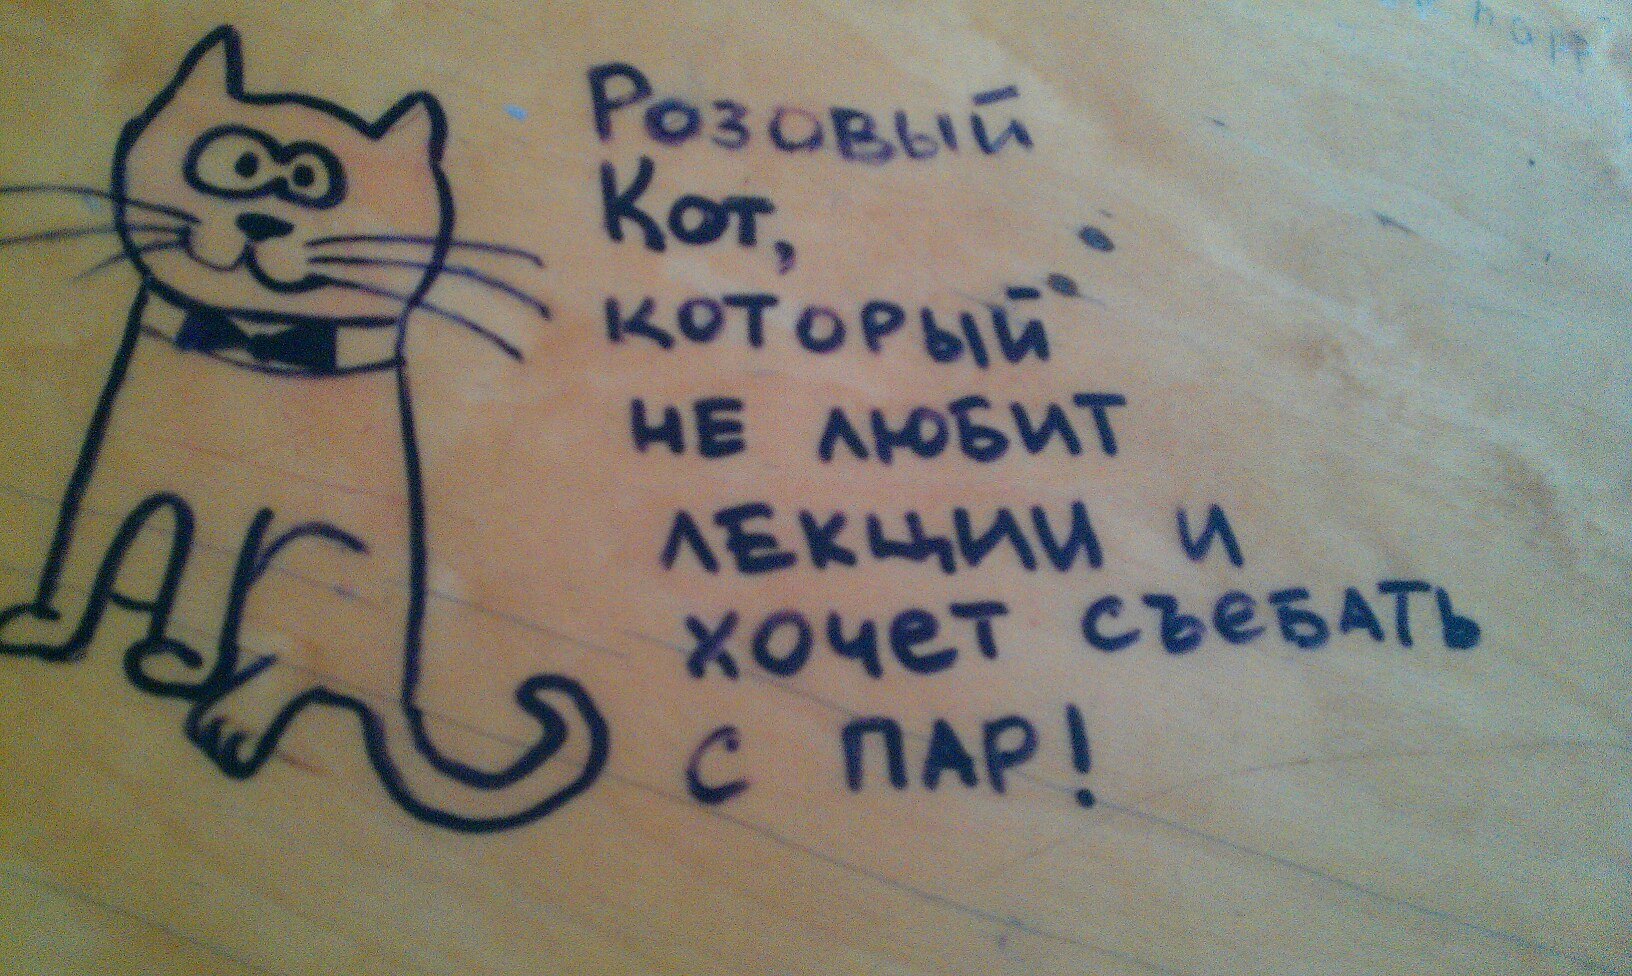 Розовый
Кот,
который
НЕ ЛЮБИТ
ЛЕКЦИИ И
ХОЧЕТ СЪЕБАТЬ
С ПАР!